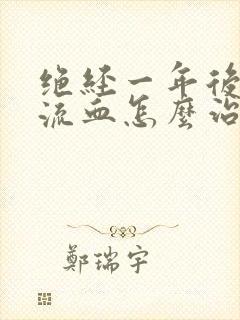 绝経一年後
流血怎麼治
鄭瑞宇